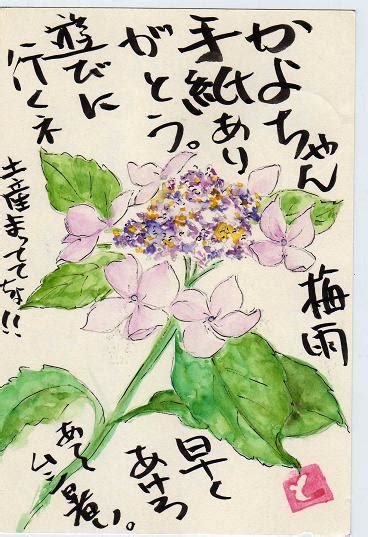 かよちゃん
手紙あり
がとう。
遊びに
行くネ
土産まっててな!!
梅雨
早く
あけろ
ムシ暑い。
と